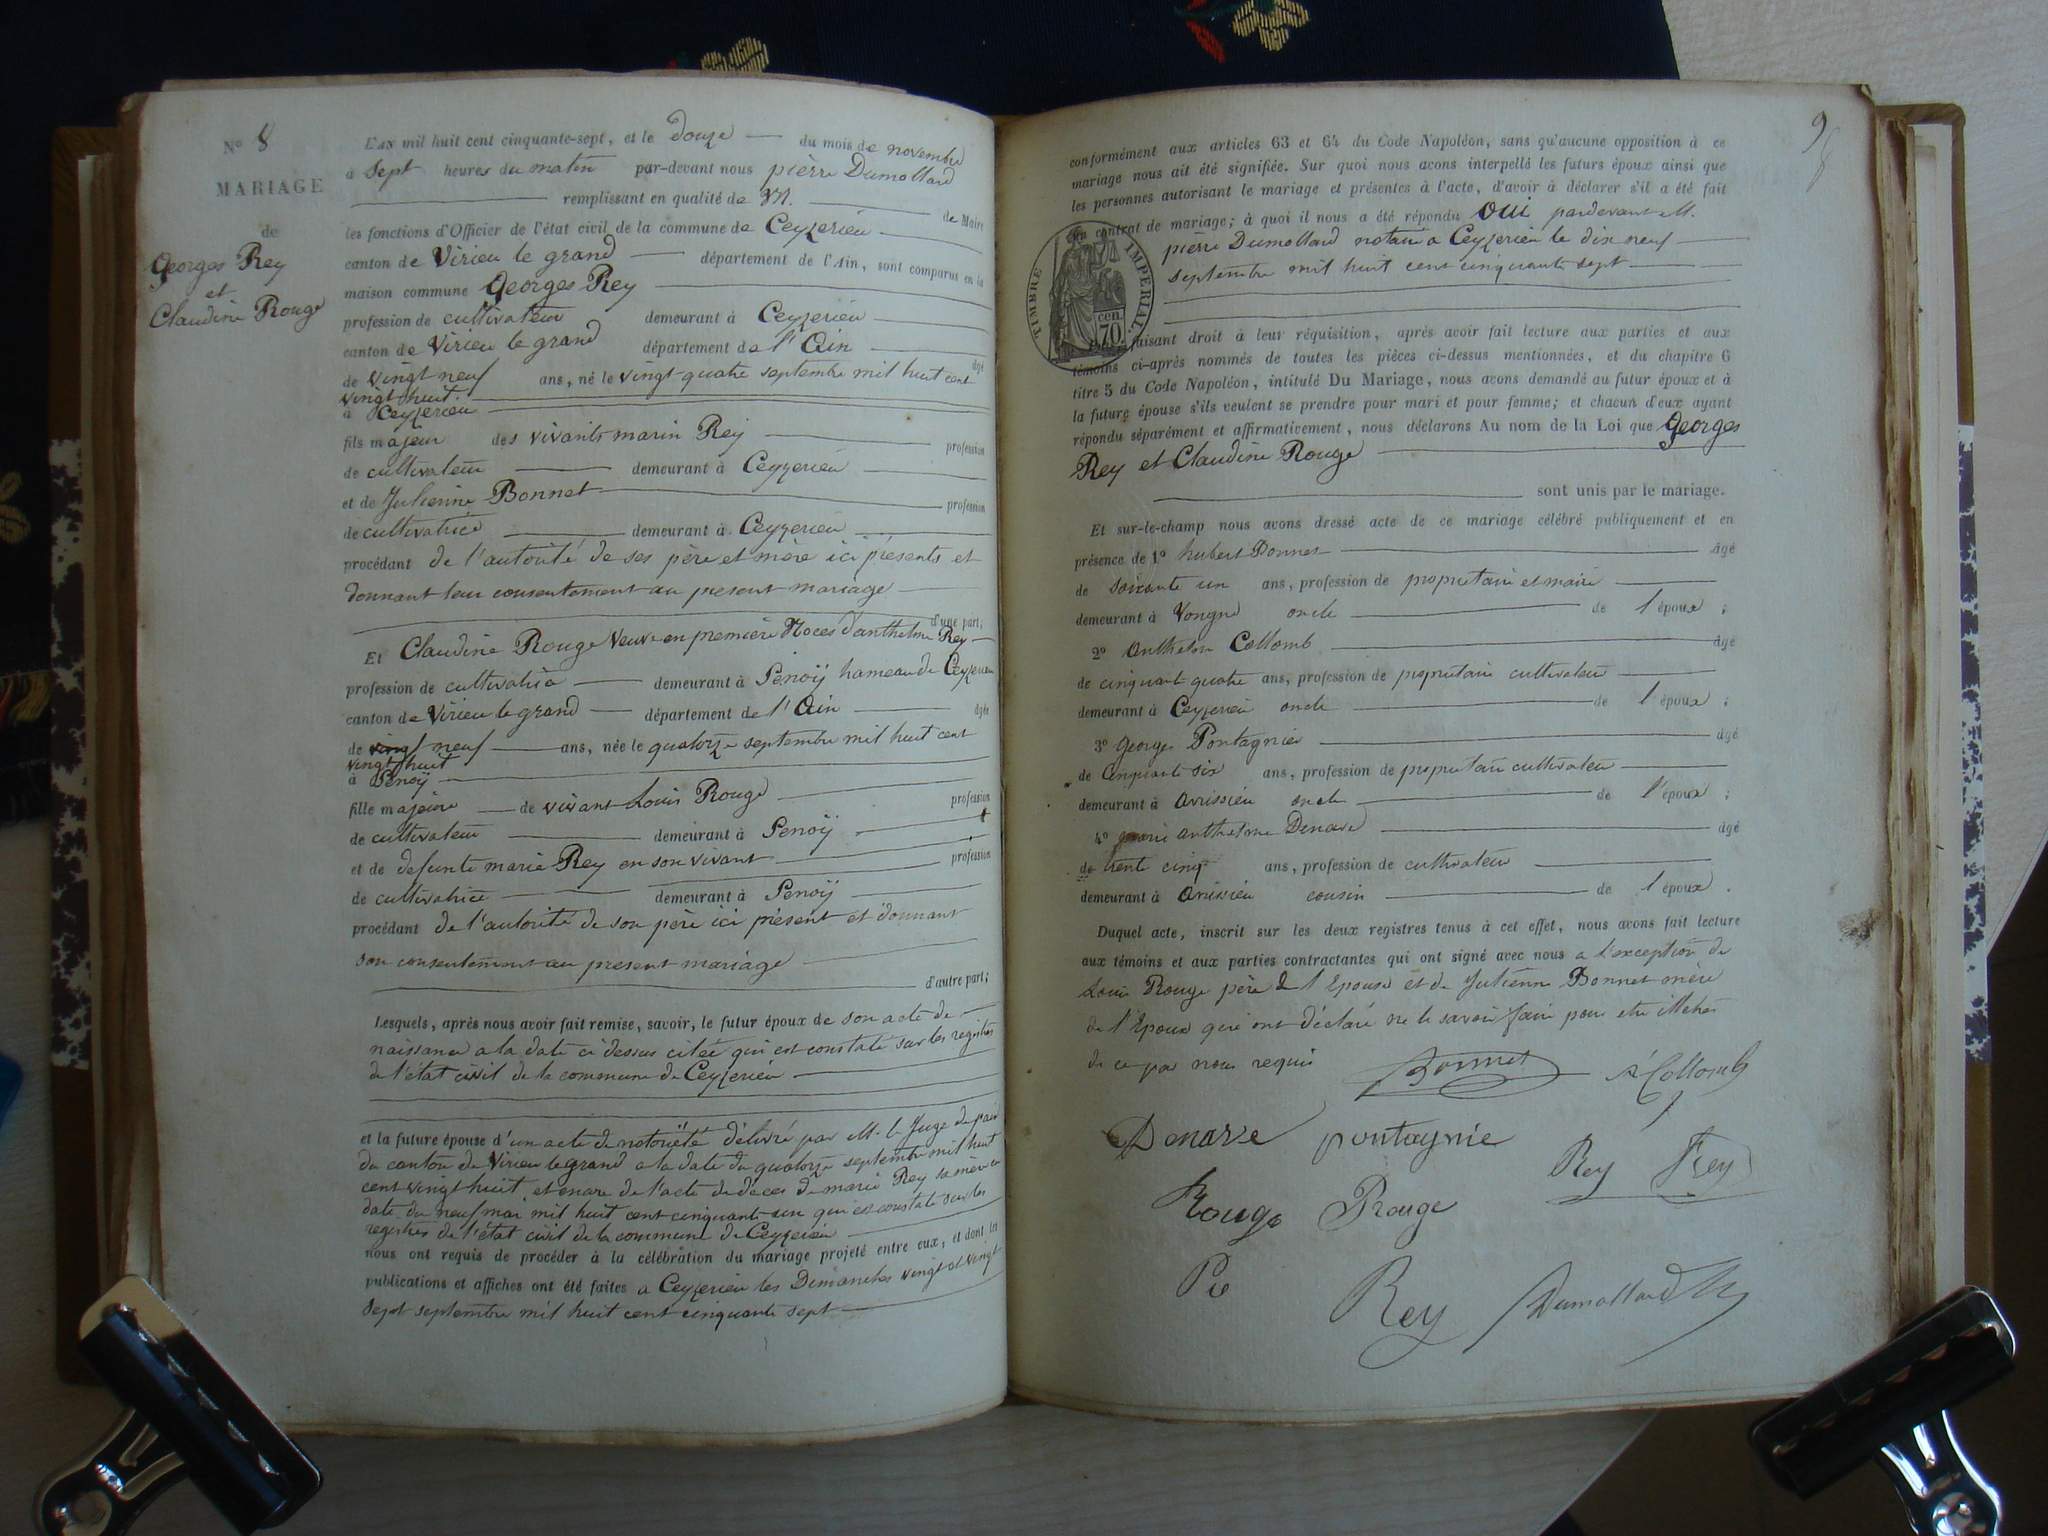 N° 8
MARIAGE
de
Georges Rey
et
Claudine Rouge
L'an mil huit cent cinquante-sept, et le douze du mois de novembre
à sept heures du matin par-devant nous pierre Dumollard
remplissant en qualité de de Maire
les fonctions d'Officier de l'état civil de la commune de Ceyzerieu
canton de Virieu le grand département de l'Ain, sont comparus en la
maison commune Georges Rey
profession de cultivateur demeurant à Ceyzerieu
canton de Virieu le grand département de l'Ain âgé
de vingt neuf ans, né le vingt quatre septembre mil huit cent
vingt huit
à Ceyzerieu
fils majeur des vivants marin Rey profession
de cultivateur demeurant à Ceyzerieu
et de Julienne Bonnet profession
de cultivatrice demeurant à Ceyzerieu
procédant de l'autorité de ses père et mère ici présents et
donnant leur consentement au present mariage
d'une part;
Et Claudine Rouge veuve en première Noces d'anthelme Rey
profession de cultivatrice demeurant à Penoÿ hameau de Ceyzerieu
canton de Virieu le grand département de l'Ain âgée
de vingt neuf ans, née le quatorze septembre mil huit cent
vingt huit
à Penoÿ
fille majeure de vivant Louis Rouge profession
de cultivateur demeurant à Penoÿ
et de defunte marie Rey en son vivant profession
de cultivatrice demeurant à Penoÿ
procédant de l'autorité de son père ici présent et donnant
son consentement au present mariage
d'autre part;
Lesquels, après nous avoir fait remise, savoir, le futur époux de son acte de
naissance a la date ci dessus citée qui est constaté sur les registres
de l'état civil de la commune de Ceyzerieu
et la future épouse d'un acte de notoriété délivré par M. le Juge de paix
du canton de Virieu le grand a la date du quatorze septembre mil huit
cent vingt huit, et encore de l'acte de deces de marie Rey sa mère en
date du neuf mai mil huit cent cinquante un qui est constaté sur les
registres de l'état civil de la commune de Ceyzerieu
nous ont requis de procéder à la célébration du mariage projeté entre eux, et dont les
publications et affiches ont été faites a Ceyzerieu les Dimanches vingt et vingt
sept septembre mil huit cent cinquante sept
9
conformément aux articles 63 et 64 du Code Napoléon, sans qu'aucune opposition à ce
mariage nous ait été signifiée. Sur quoi nous avons interpellé les futurs époux ainsi que
les personnes autorisant le mariage et présentes à l'acte, d'avoir à déclarer s'il a été fait
un contrat de mariage; à quoi il nous a été répondu oui pardevant M.
pierre Dumollard notaire a Ceyzerieu le dix neuf
septembre mil huit cent cinquante sept
TIMBRE IMPERIAL
70 cen.
faisant droit à leur réquisition, après avoir fait lecture aux parties et aux
témoins ci-après nommés de toutes les pièces ci-dessus mentionnées, et du chapitre 6
titre 5 du Code Napoléon, intitulé Du Mariage, nous avons demandé au futur époux et à
la future épouse s'ils veulent se prendre pour mari et pour femme; et chacun d'eux ayant
répondu séparément et affirmativement, nous déclarons Au nom de la Loi que Georges
Rey et Claudine Rouge
sont unis par le mariage.
Et sur-le-champ nous avons dressé acte de ce mariage célébré publiquement et en
présence de 1° hubert Bonnet âgé
de soixante un ans, profession de proprietaire et maire
demeurant à Vongne oncle de l'époux;
2° Anthelme Collomb âgé
de cinquante quatre ans, profession de proprietaire cultivateur
demeurant à Ceyzerieu oncle de l'époux;
3° Georges Pontagnier âgé
de cinquante six ans, profession de proprietaire cultivateur
demeurant à Avrissieu oncle de l'époux;
4° marie anthelme Denave âgé
de trente cinq ans, profession de cultivateur
demeurant à Avrissieu cousin de l'époux.
Duquel acte, inscrit sur les deux registres tenus à cet effet, nous avons fait lecture
aux témoins et aux parties contractantes qui ont signé avec nous a l'exception de
Louis Rouge père de l'Epouse et de Julienne Bonnet mère
de l'Epoux qui ont déclaré ne le savoir faire pour etre illetrés
de ce par nous requis Bonnet A Collomb
Denave pontagnie Rey Rey
Rouge Rouge
Rey Dumollard